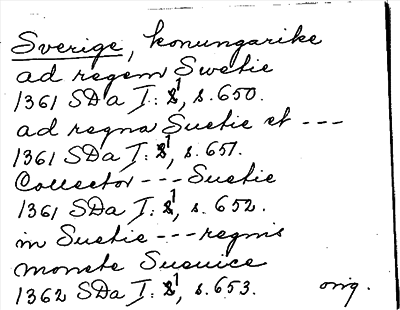 Sverige, konungarike
ad regem Swetie
1361 SDa I: 1, s. 650.
ad regna Suetie et ---
1361 SDa I: 1, s. 651.
Collector --- Suetie
1361 SDa I: 1, s. 652.
in Suetie --- regnis
monete Sueuice
1362 SDa I: 1, s. 653. orig.